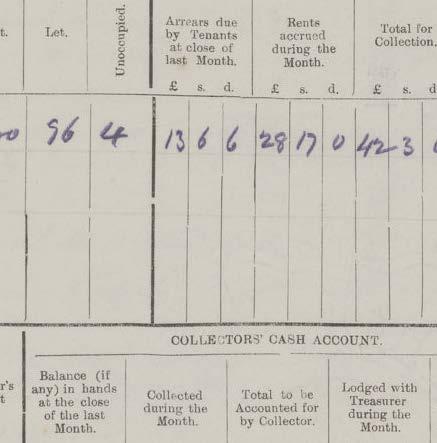 t. Let. Unoccupied. Arrears due by Tenants at close of last Month. Rents accrued during the Month. Total for Collection.
£ s. d. £ s. d. £ s. d
96 4 13 6 6 28 17 0 42 3
COLLECTORS' CASH ACCOUNT.
r's
t
Balance (if
any) in hands
at the close
of the last
Month.
Collected
during the
Month.
Total to be
Accounted for
by Collector.
Lodged with
Treasurer
during the
Month.